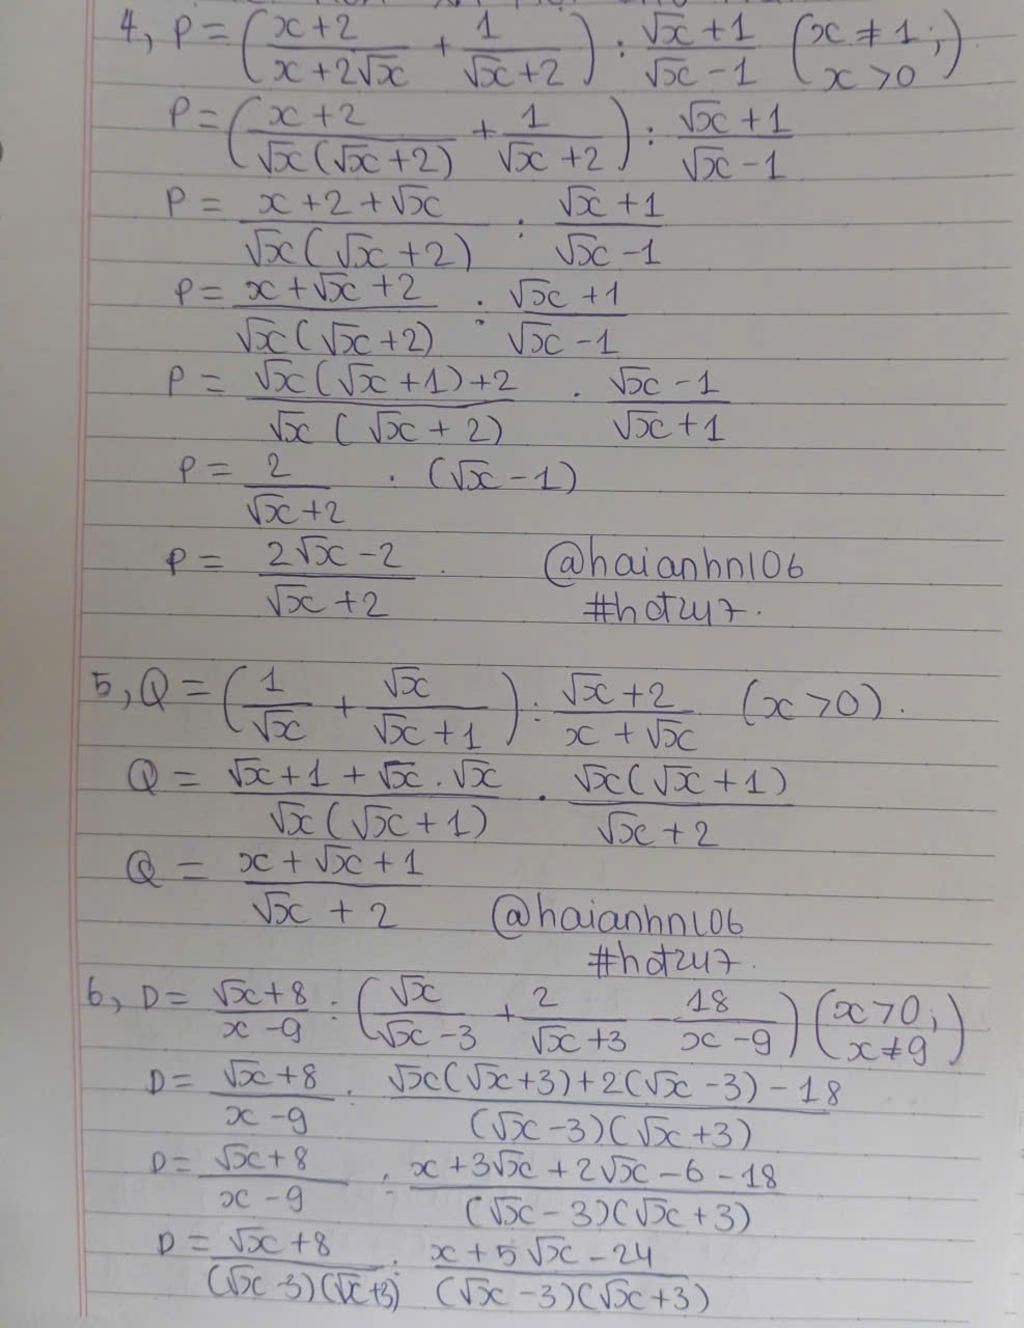 4, P = (x+2/x+2√x + 1/√x+2) : √x+1/√x-1 (x ≠ 1; x > 0)
P = (x+2/√x(√x+2) + 1/√x+2) : √x+1/√x-1
P = x+2+√x/√x(√x+2) : √x+1/√x-1
P = x+√x+2/√x(√x+2) : √x+1/√x-1
P = √x(√x+1)+2/√x(√x+2) . √x-1/√x+1
P = 2/√x+2 . (√x-1)
P = 2√x-2/√x+2 . @haianhn106
#hot247.
5, Q = (1/√x + √x/√x+1) : √x+2/x+√x (x>0).
Q = √x+1+√x.√x/√x(√x+1) . √x(√x+1)/√x+2
Q = x+√x+1/√x+2 @haianhn106
#hot247.
6, D = √x+8/x-9 : (√x/√x-3 + 2/√x+3 - 18/x-9) (x>0; x≠9)
D = √x+8/x-9 : √x(√x+3)+2(√x-3)-18/(√x-3)(√x+3)
D = √x+8/x-9 : x+3√x+2√x-6-18/(√x-3)(√x+3)
D = √x+8/(√x-3)(√x+3) : x+5√x-24/(√x-3)(√x+3)